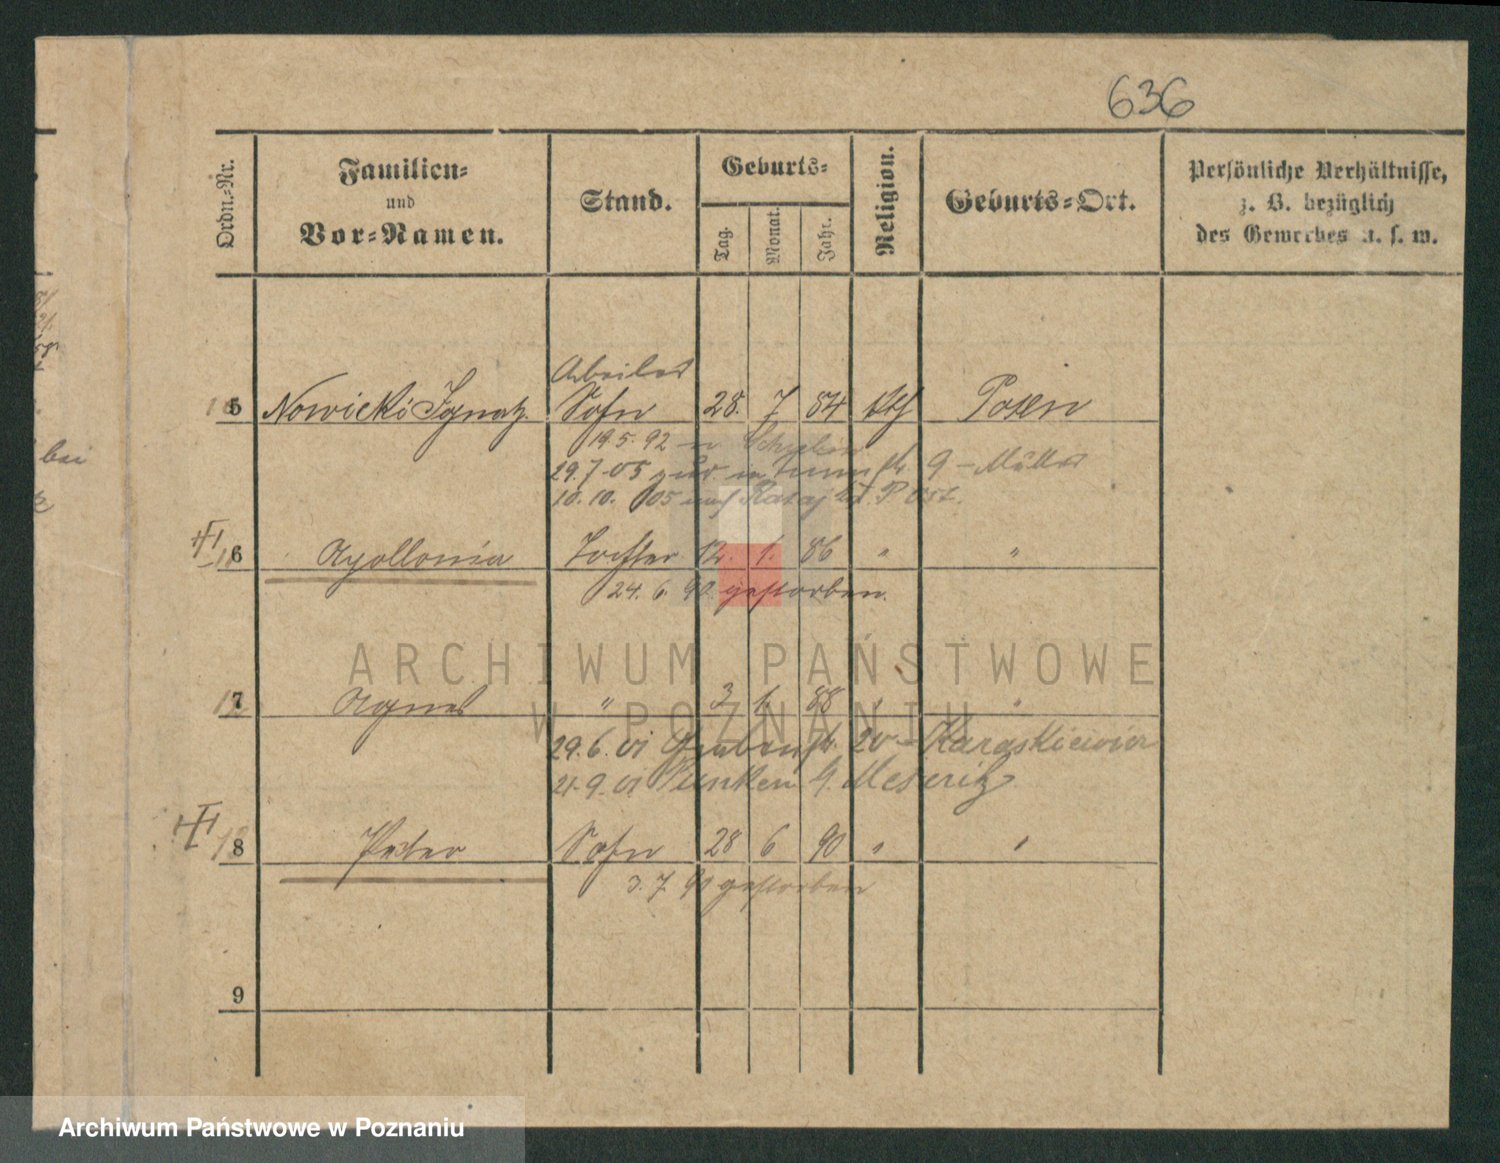 636
Ordn.-Nr.
Familien-
und
Vor-Namen.
Stand.
Geburts-
Tag.
Monat.
Jahr.
Religion.
Geburts-Ort.
Persönliche Verhältnisse,
z. B. bezüglich
des Gewerbes u. s. w.
bei
Arbeiter
5 Nowicki Ignatz. Sohn 28. 7 84 kth Posen
19.5.92 Schubin
29.7.05 zur. 9 - Müller
10.10.05 nach Rataj Kr. P. Ost.
6 Apollonia Tochter 12. 1. 86 " "
24. 6. 90 gestorben.
ARCHIWUM PAŃSTWOWE
W POZNANIU
7 Agnes " 3 1. 88 " "
29.6.01 Grabenstr. 20 - Karaskiewicz
21.9.01 Kr. Meseritz
8 Peter Sohn 28 6 90 " "
3. 7. 90 gestorben
9
Archiwum Państwowe w Poznaniu